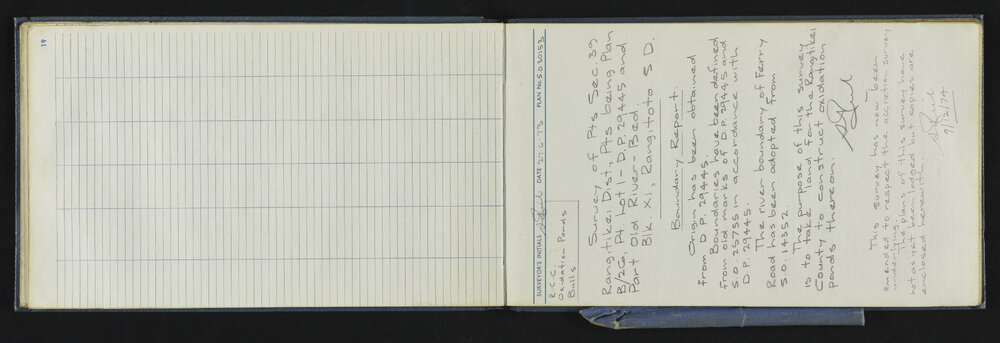 19
SURVEYOR'S INITIALS DATE 27.6.73 PLAN No. S.O. 30153
R.C.C.
Oxidation Ponds
Bulls.
Survey of Pts Sec. 39
Rangitikei Dist., Pts being Plan
B/26, Pt Lot 1 - D.P. 29445 and
Part Old River-Bed.
Blk. XI, Rangitoto S.D.
Boundary Report
Origin has been obtained
from D.P. 29445
Boundaries have been defined
from old marks of D.P. 29445 and
S.O. 25755 in accordance with
D.P. 29445.
The river boundary of Ferry
Road has been adopted from
S.O. 14352.
The purpose of this survey
is to take land for the Rangitikei
County to construct oxidation
ponds thereon.
This survey has now been
amended to respect the accretion survey
underlying.
The plans of this survey have
not as yet been lodged but copies are
enclosed herewith.
9/12/74